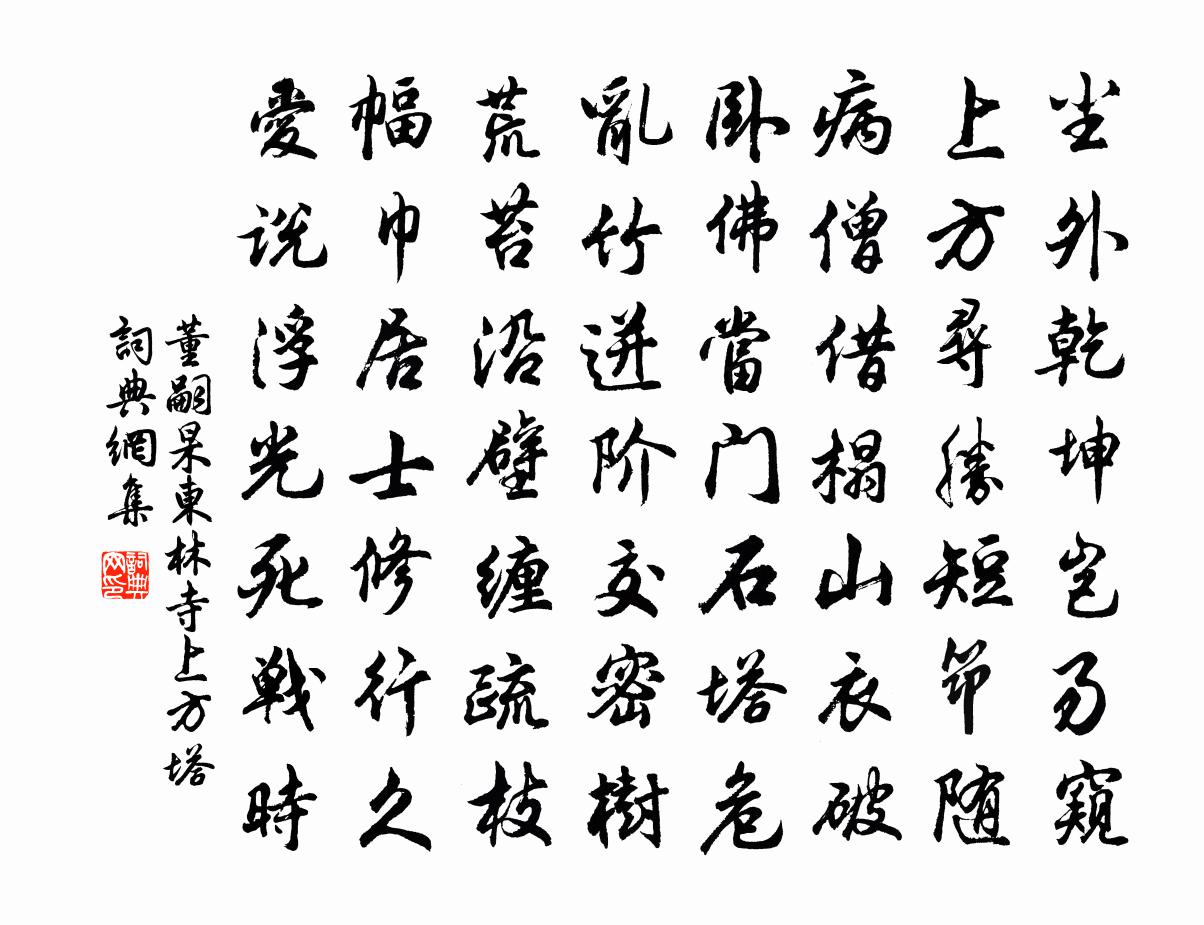 尘外乾坤岂易窺
上方尋勝短筇随
病僧借榻山衣破
卧佛當门石塔危
亂竹迸阶交密樹
荒苔沿壁缠疏枝
幅巾居士修行久
愛说浮光死戰時
董嗣杲東林寺上方塔
詞典網集
詞典网印